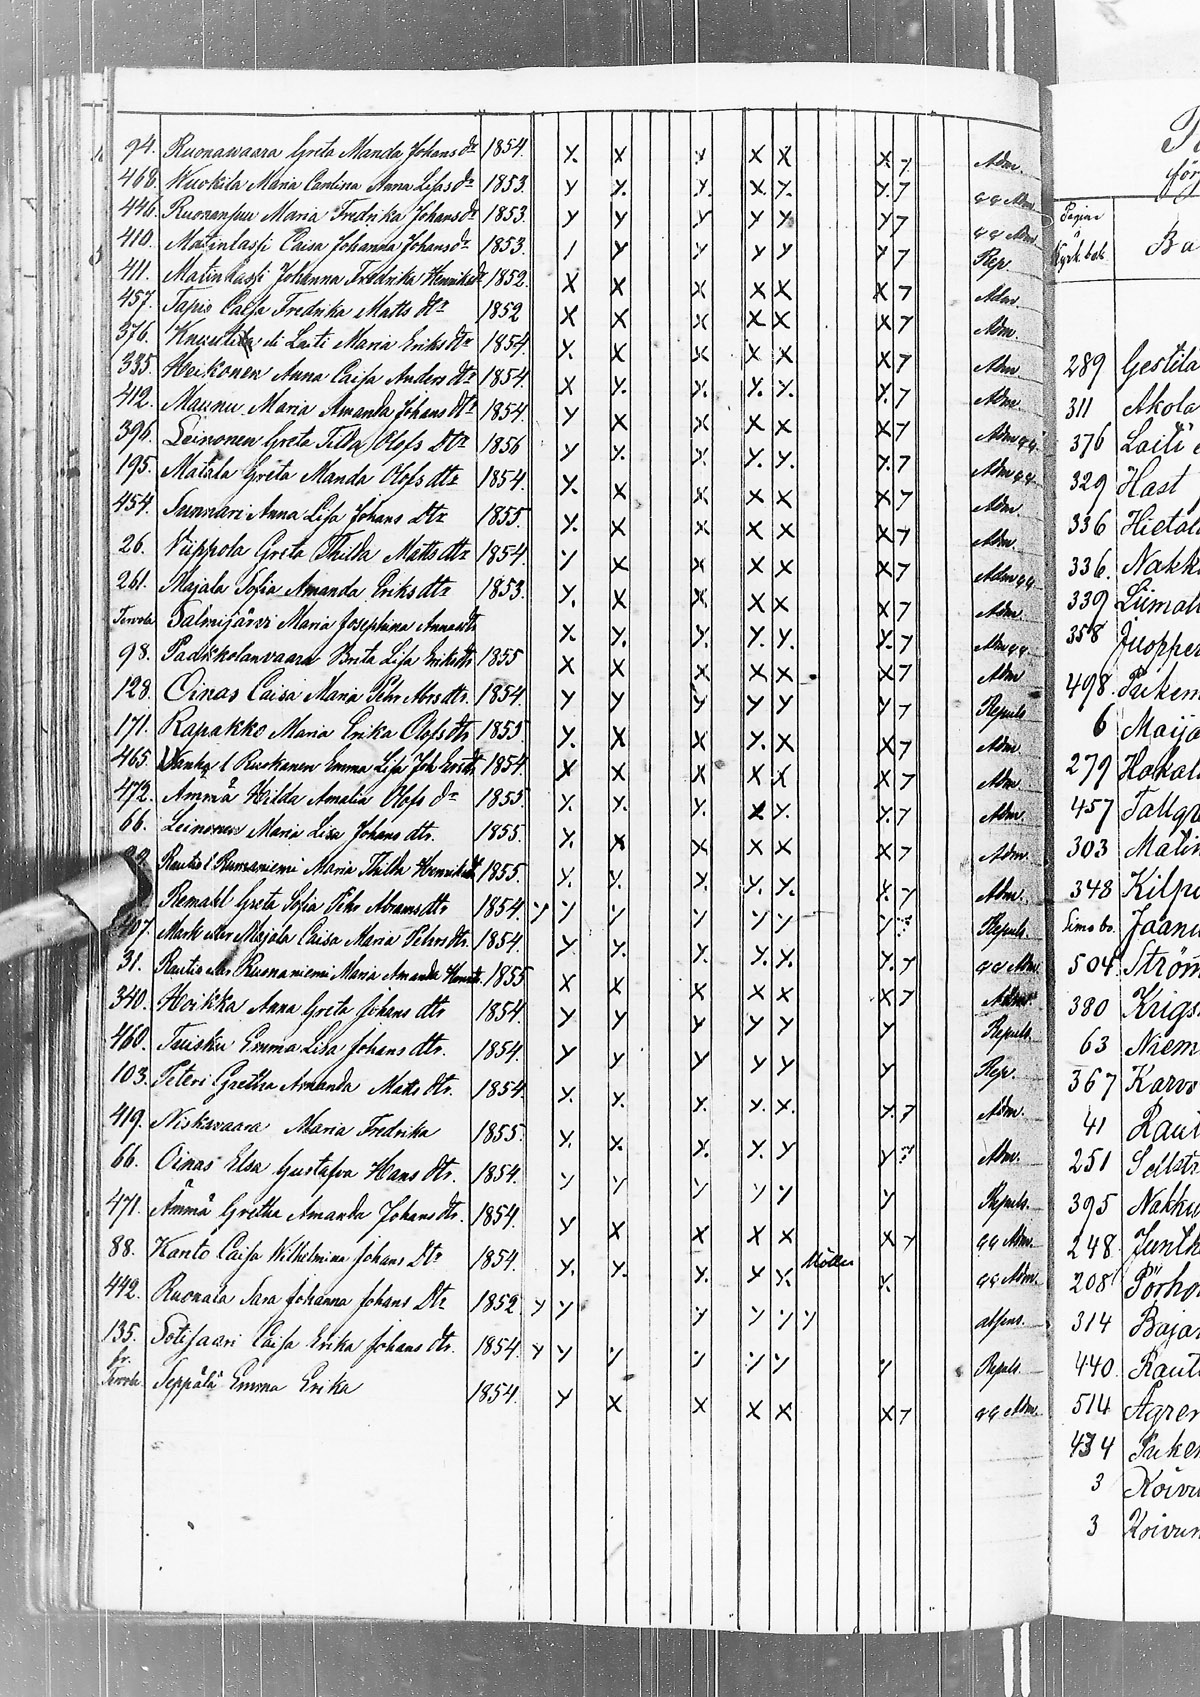 94. Ruonawaara Greta Manda Johans dr 1854. X. X Y X X X 7 Adm.
468. Wuokila Maria Carolina Anna Lisas dr 1853. Y Y. Y. X Y. Y. 7 qq Adm
446. Maria Fredrika Johans dr 1853. Y Y Y Y Y Y 7 qq Adm.
410. Matinlassi Caisa Johanna Johans dr 1853. 1 Y Y Y Y Y 7 Rep.
411. Matinlassi Johanna Fredrika Henriks dr 1852. X X X X X X 7 Adm.
457. Tapio Caisa Fredrika Matts dtr 1852 X X X X X X 7 Adm.
376. di Laiti Maria Eriks dtr 1854. Y. X X X X X 7 Adm
335. Heikonen Anna Caisa Anders dtr 1854. X Y. Y. Y. Y. Y. 7 Adm.
412. Maunu Maria Amanda Johans dtr 1854. Y X X X X X 7 Adm qq.
396. Leinonen Greta Tilda Olofs Dtr 1856 Y Y. Y. Y. Y. Y. 7 Adm qq.
195. Matala Greta Manda Olofs dtr 1854. Y. X X X X X 7 Adm.
454. Sunnari Anna Lisa Johans Dtr 1855. Y. X X X X X 7 Adm.
26. Viippola Greta Thilda Matts dtr 1854. Y X X X X X 7 Adm qq.
261. Majala Sofia Amanda Eriks dtr 1853. Y. X X X X X 7 Adm.
Terwola Salmijärvi Maria Josephina Annas dtr Y. Y. Y. Y. Y. Y. 7 Adm qq.
98. Paakkolanvaara Brita Lisa Eriks dtr 1855 X X X X X X 7 Adm
128. Oinas Caisa Maria Pehr Abrs dtr. 1854. Y Y Y Y Y Y 7 Repuls
171. Rapakko Maria Erika Olofs dtr 1855. Y. X X Y. X X 7 Adm.
465. Wanha l Ruokanen Emma Lisa Joh Ers dtr 1854. X X X X X X 7 Adm.
472. Ämmä Hilda Amalia Olofs dr 1855. Y. Y. Y. X Y. Y. 7 Adm.
66. Leinonen Maria Lisa Johans dtr. 1855. Y. X X X X X 7 Adm.
Rautio l Rumaniemi Maria Thilda Henriks dtr 1855. Y. Y. Y. Y. Y. Y. 7 Adm.
Remahl Greta Sofia Pehr Abrams dtr 1854. Y Y Y Y Y Y Y Repuls.
407. Mark eller Majala Caisa Maria Pehrs dtr. 1854. Y Y. Y. Y. Y. Y. 7 qq Adm.
31. Rautio eller Ruonaniemi Maria Amanda Henriks dtr 1855 X X X X X X 7 Adm.
340. Heikka Anna Greta Johans dtr 1854. Y Y Y Y Y Y Repuls.
460. Tuisku Emma Lisa Johans dtr. 1854. Y Y Y Y Y Y Rep.
103. Peteri Gretha Amanda Mats dtr. 1854. Y. Y. Y. Y. X. Y. 7 Adm.
419. Niskavaara Maria Fredrika 1855. Y. X. Y. Y. Y Y 7 Adm.
66. Oinas Elsa Gustafva Hans dtr. 1854. Y Y Y Y Y Y Repuls.
471. Ämmä Gretha Amanda Johans dtr. 1854. Y X X X X X 7 qq Adm.
88. Kanto Caisa Wilhelmina Johans Dtr 1854. Y. Y. Y. Y Y. Möller Y. qq Adm.
442. Ruonala Sara Johanna Johans Dtr 1852 Y Y Y Y Y Y absens.
135. Potisaari Caisa Erika Johans dtr. 1854. Y Y Y Y Y Y Y Repuls
fr. Terwola Seppälä Emma Erika 1854. Y X X X X X 7 qq Adm.
för
Pagina
å
Kyrk. bok
Ba
289 Gestila
311 Akola
376 Laiti
329 Hast
336 Hietal
336. Nakk
339 Liimat
358 Juopper
498. Pukem
6 Maija
279 Hakal
457 Tallgr
303 Matin
348 Kilp
Simo bs. Jaanu
504. Ström
380 Krigs
63 Niem
367 Karv
41 Raut
251 Sellst
395 Nakku
248. Junth
208 Pörho
314 Baja
440. Raut
514 Ågren
434 Puke
3 Koivu
3 Koivun